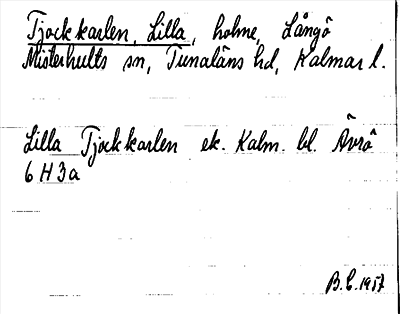 Tjockkarlen, Lilla, holme, Långö
Misterhults sn, Tunaläns hd, Kalmar l.
Lilla Tjockkarlen ek. Kalm. bl. Ävrö
6 H 3a
B.C. 1957